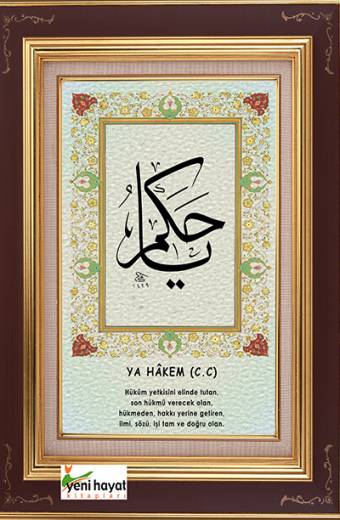 يا حكم
١٤٢٩
YA HÂKEM (C.C)
Hüküm yetkisini elinde tutan,
son hükmü verecek olan,
hükmeden, hakkı yerine getiren,
ilmi, sözü, işi tam ve doğru olan.
yeni hayat
kitapları